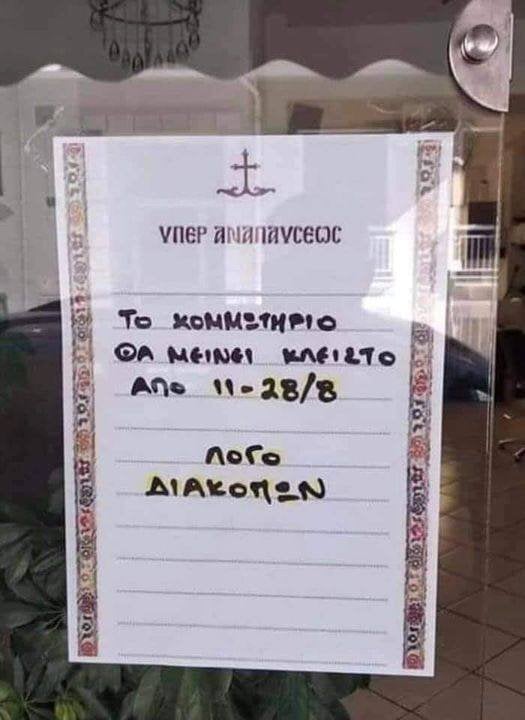 ΥΠΕΡ ΑΝΑΠΑΥΣΕΩΣ
ΤΟ ΚΟΜΜΩΤΗΡΙΟ
ΘΑ ΜΕΙΝΕΙ ΚΛΕΙΣΤΟ
ΑΠΟ 11-28/8
ΛΟΓΟ
ΔΙΑΚΟΠΩΝ